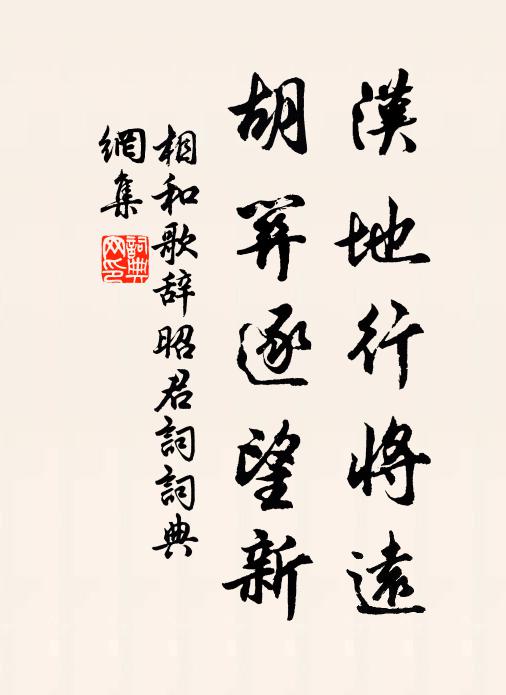 漢地行將遠
胡關逐望新
相和歌辞昭君詞詞典
網集
詞典
网印